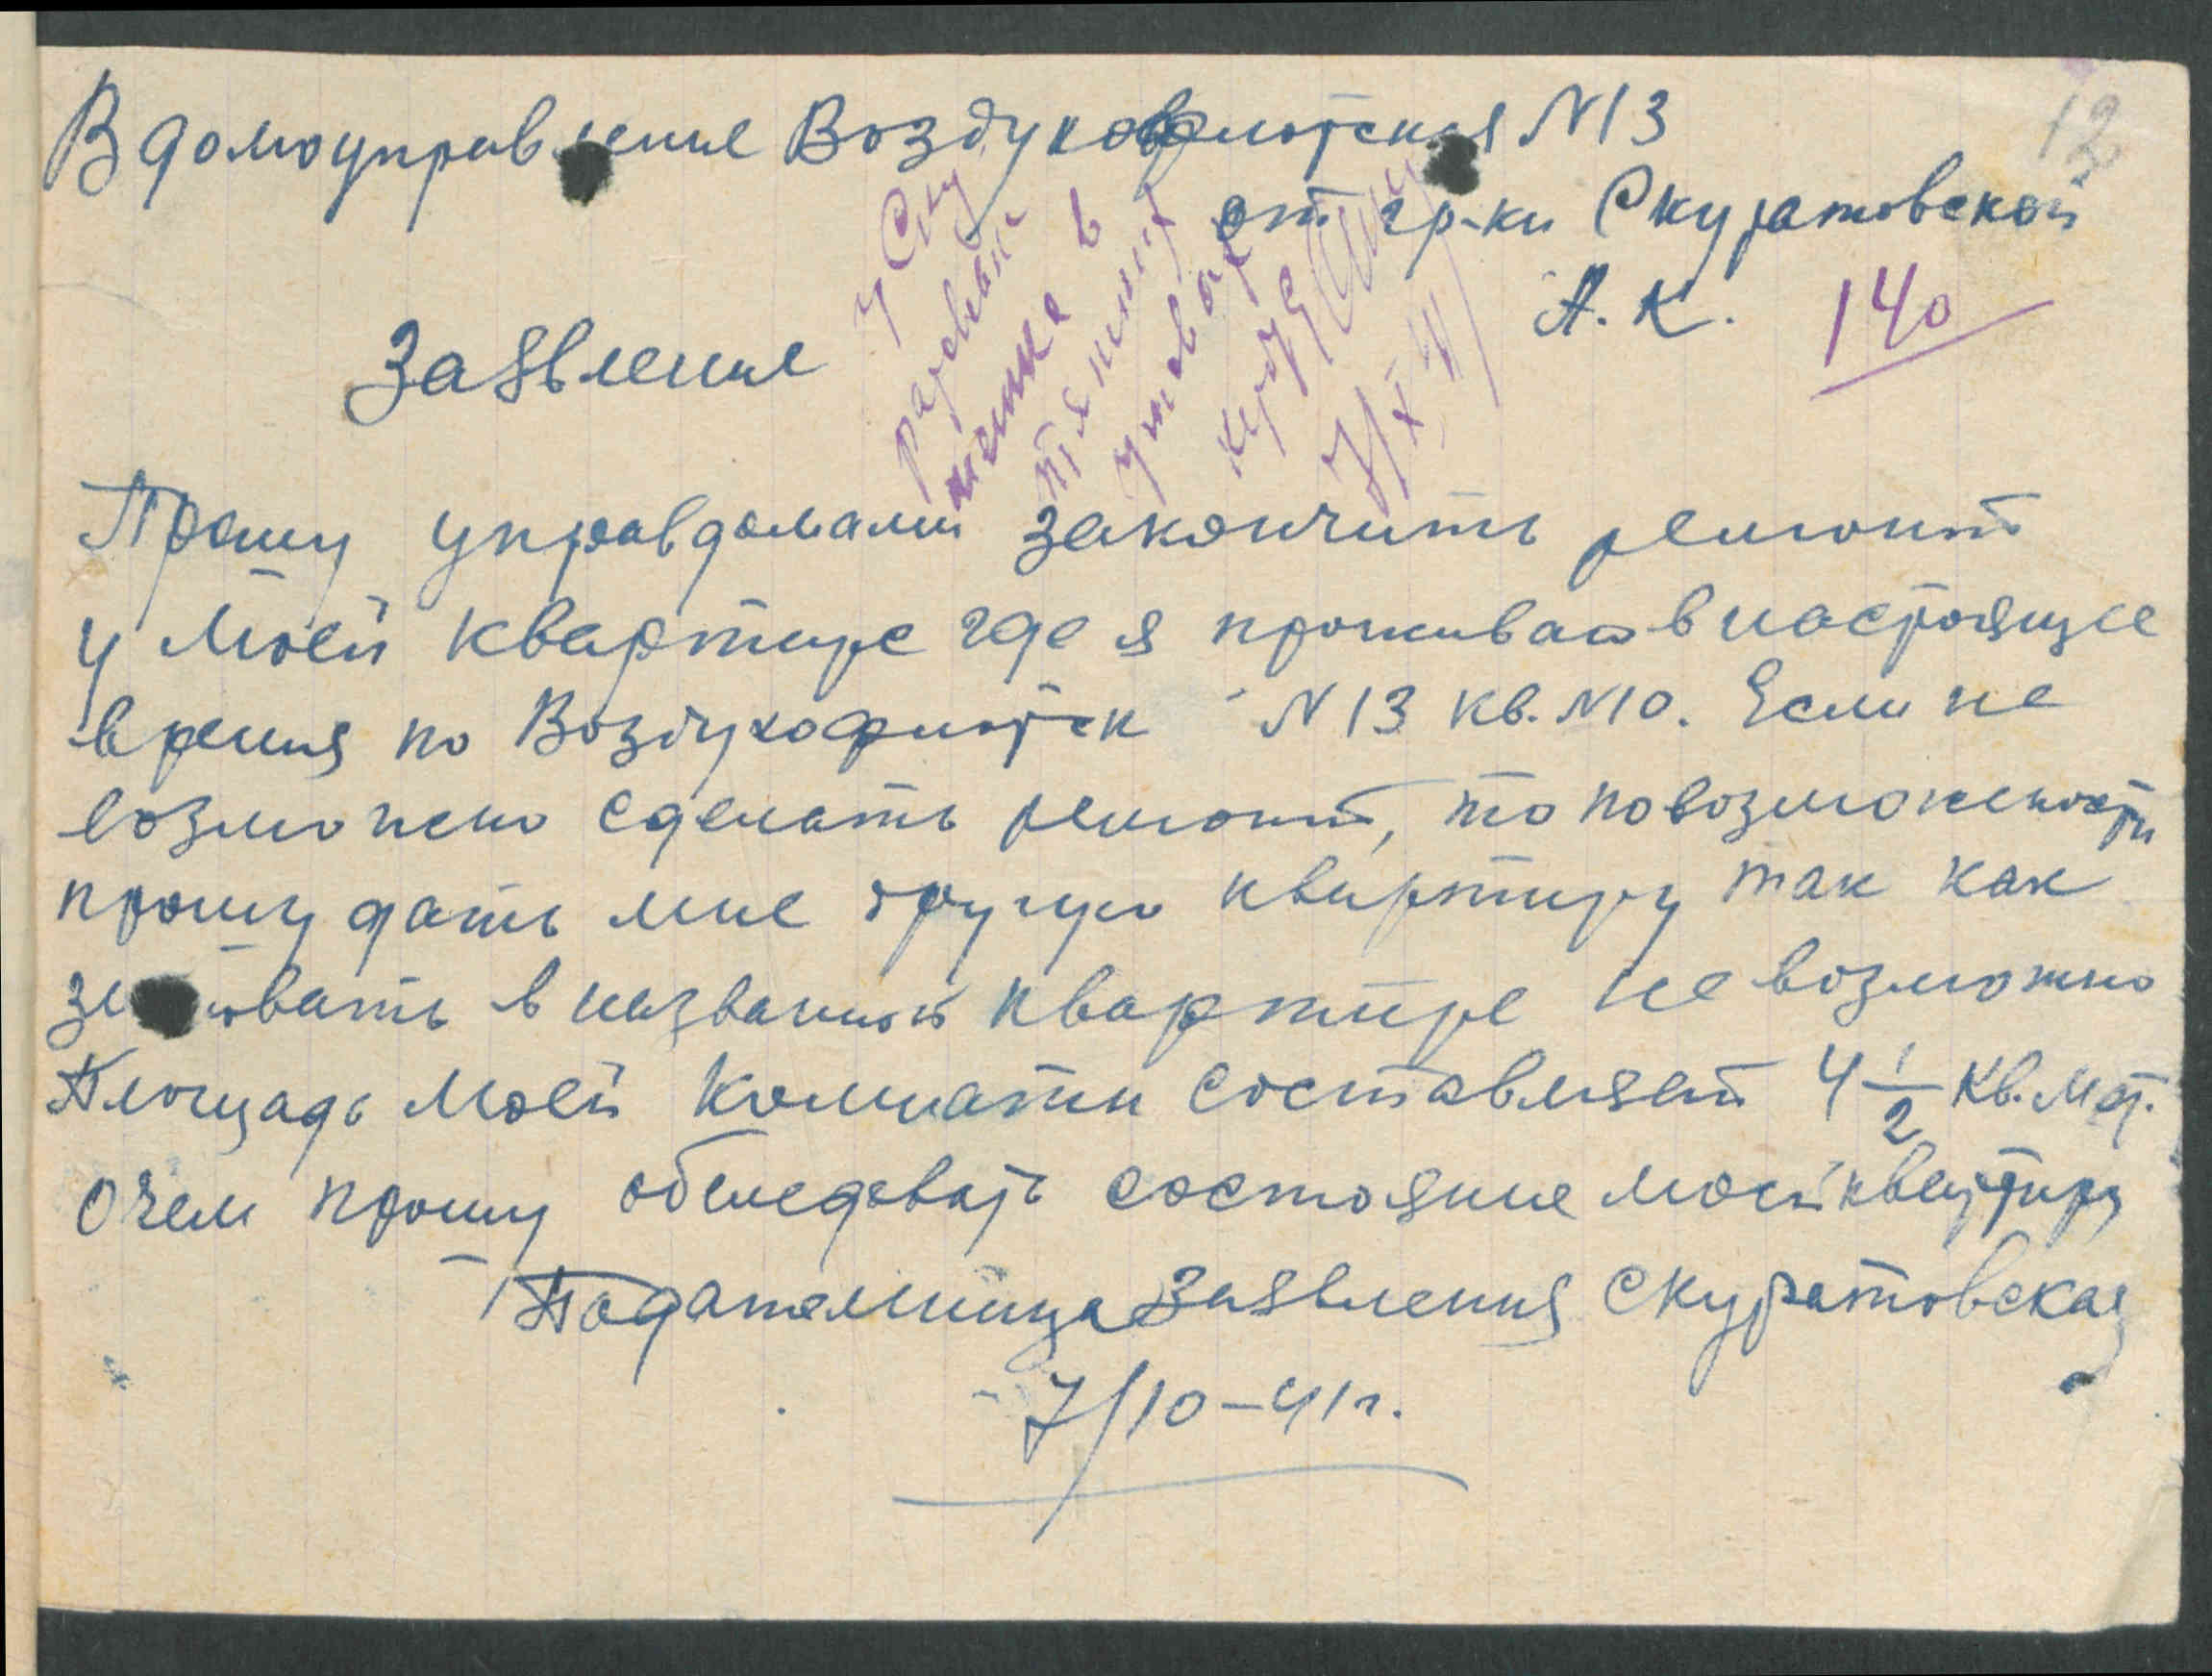 В домоуправление Воздухофлотская N 13
12
от гр-ки Скуратовской
А. К.
140
Заявление
Прошу управдомами закончить ремонт
у моей квартире где я проживаю в настоящее
время по Воздухофлотск N 13 кв. N 10. Если не
возможно сделать ремонт, то по возможности
прошу дать мне другую квартиру так как
в названной квартире не возможно
Площадь моей комнати составляет 4 1/2 кв. мет.
О чем прошу обследовать состояние моей квартиры
Подательница Заявления Скуратовская
7/10-41 г.